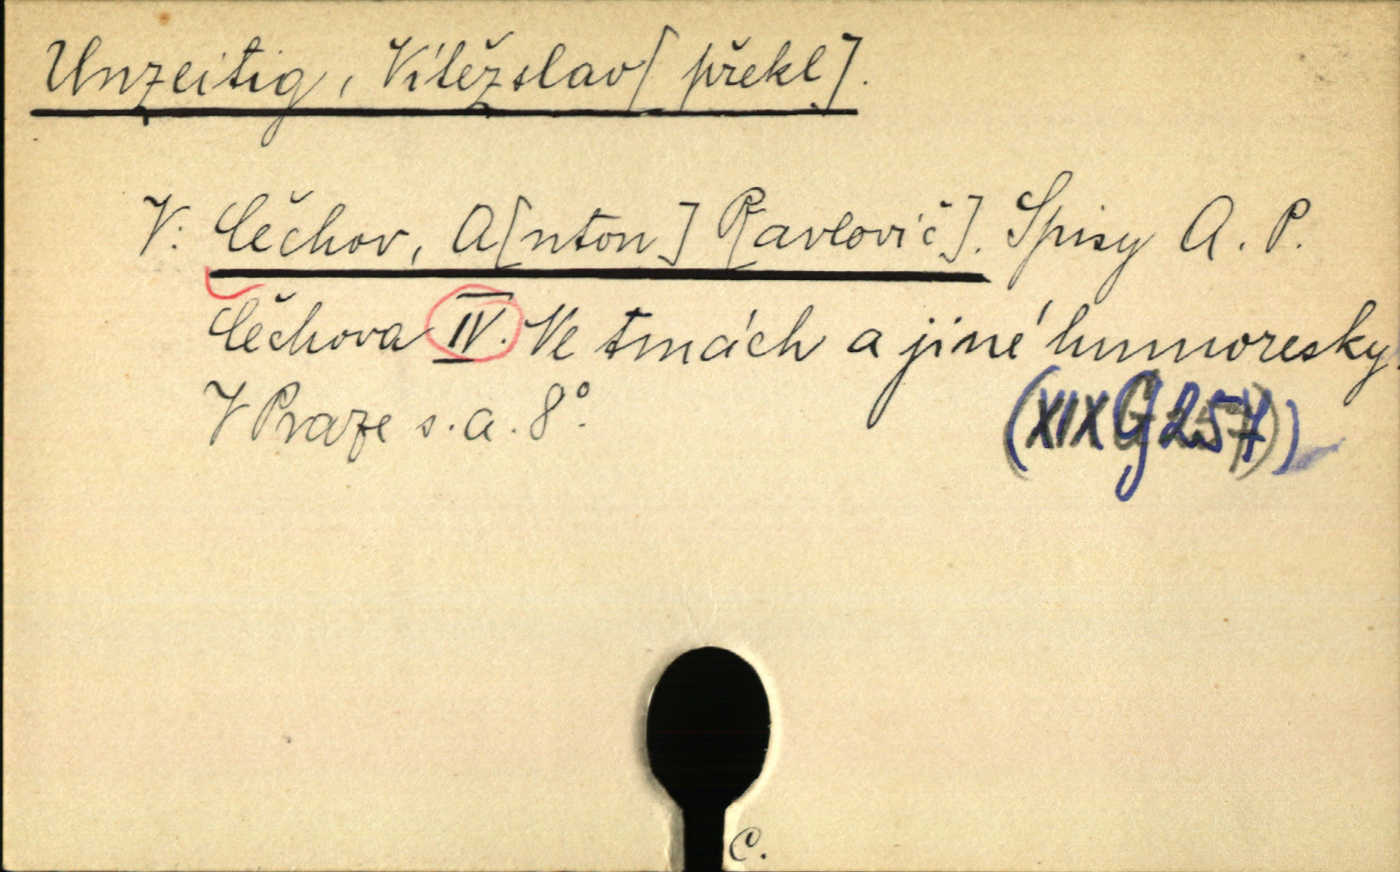 Unzeitig, Vítězslav [překl].
V: Čechov, A[nton] P[avlovič]. Spisy A. P.
Čechova IV. Ve tmách a jiné humoresky.
V Praze s. a. 8°.
(XIX G 257)
C.